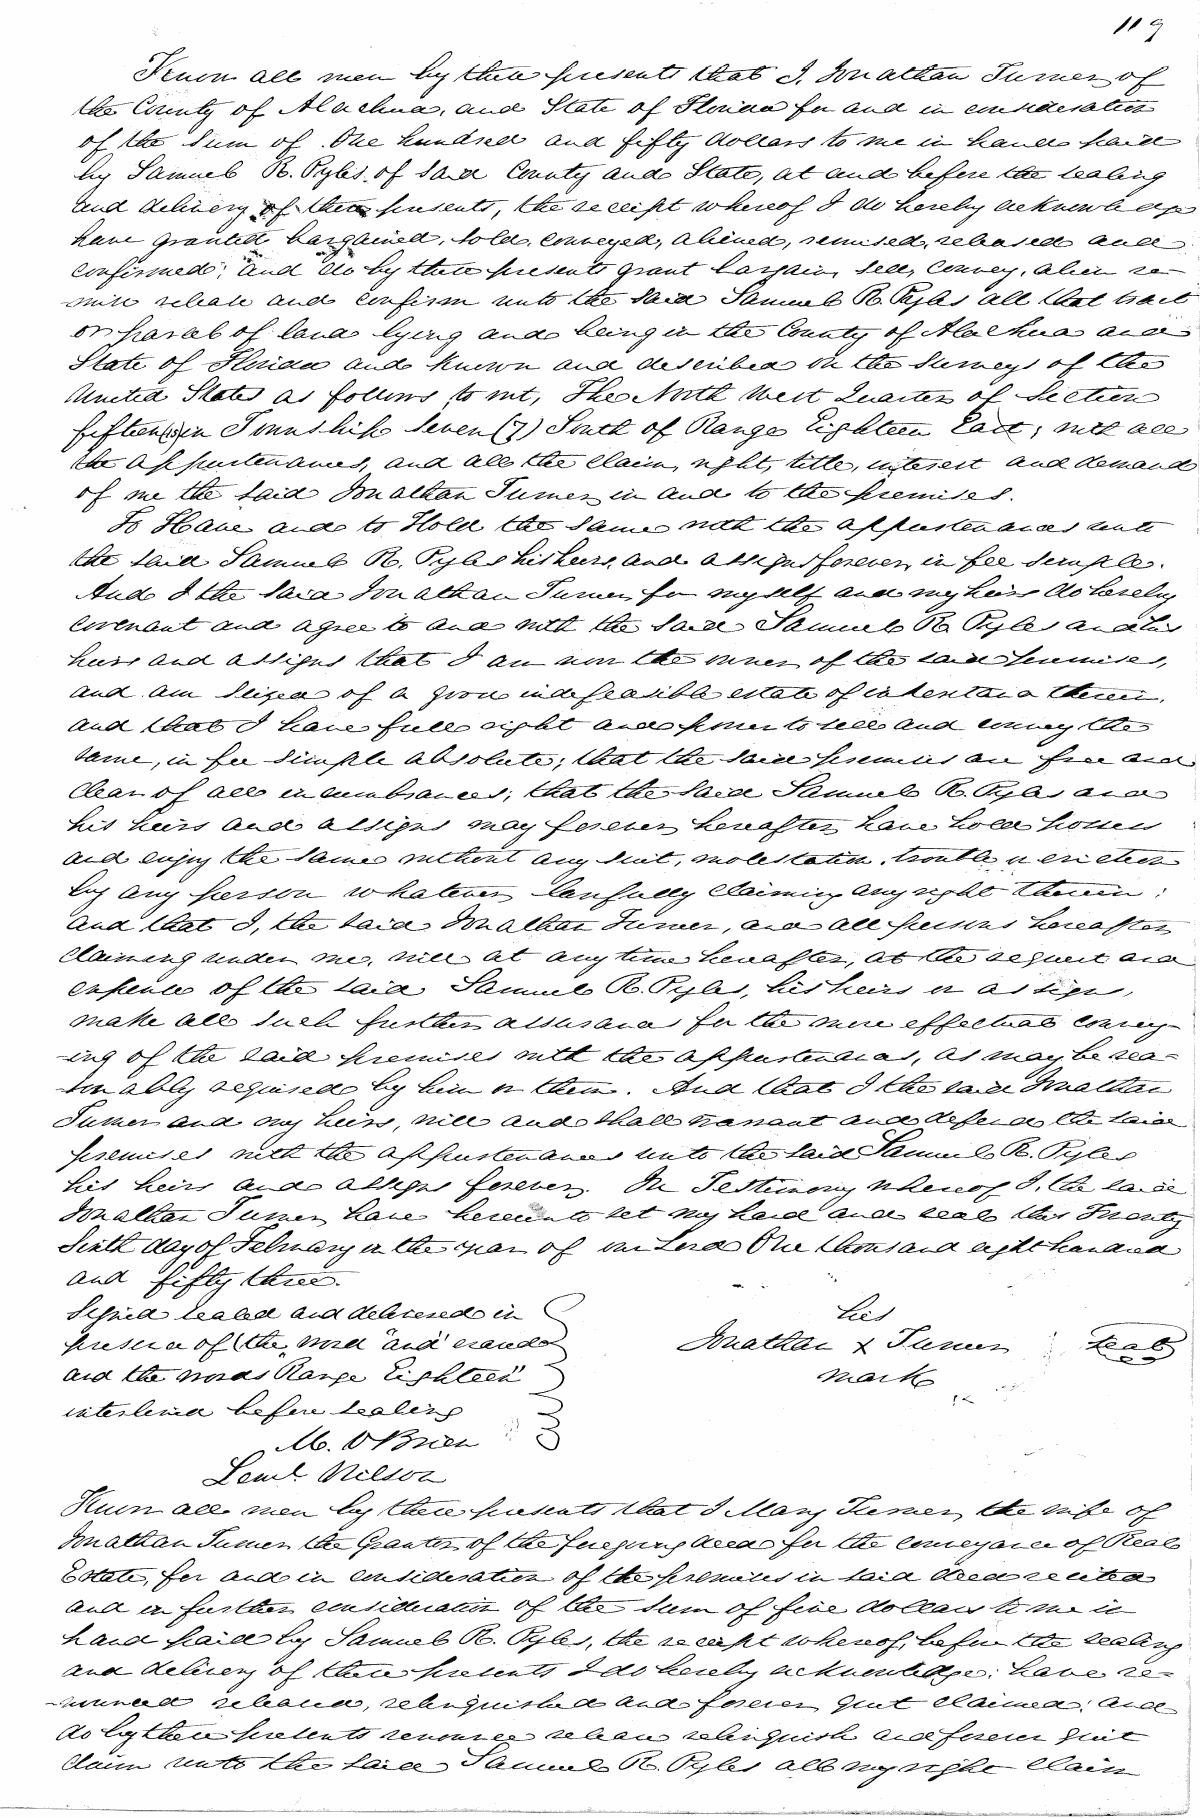 119
Know all men by these presents that I, Jonathan Turner of
the County of Alachua, and State of Florida for and in consideration
of the sum of One hundred and fifty dollars to me in hand paid
by Samuel R. Pyles of said County and State, at and before the sealing
and delivery of these presents, the receipt whereof I do hereby acknowledge
have granted, bargained, sold, conveyed, aliened, remised, released and
confirmed; and do by these presents grant bargain, sell, convey, alien re-
mise release and confirm unto the said Samuel R. Pyles all that tract
or parcel of land lying and being in the County of Alachua and
State of Florida and known and described in the Surveys of the
United States as follows, to wit, The North West Quarter of Section
fifteen (15) in Township Seven (7) South of Range Eighteen East; with all
the appurtenances, and all the claim, right, title, interest and demand
of me the said Jonathan Turner in and to the premises.
To Have and to Hold the same with the appurtenances unto
the said Samuel R. Pyles his heirs, and assigns forever, in fee simple.
And I the said Jonathan Turner for myself and my heirs do hereby
covenant and agree to and with the said Samuel R. Pyles and his
heirs and assigns that I am now the owner of the said premises,
and am seized of a good indefeasible estate of inheritance therein,
and that I have full right and power to sell and convey the
same, in fee simple absolute; that the said premises are free and
clear of all incumbrances; that the said Samuel R. Pyles and
his heirs and assigns may forever hereafter have hold possess
and enjoy the same without any suit, molestation, trouble or eviction
by any person whatever lawfully claiming any right therein:
and that I, the said Jonathan Turner, and all persons hereafter
claiming under me, will at any time hereafter, at the request and
expense of the said Samuel R. Pyles, his heirs or assigns,
make all such further assurance for the more effectual convey-
-ing of the said premises with the appurtenances, as may be rea-
-sonably required by him or them. And that I the said Jonathan
Turner and my heirs, will and shall warrant and defend the said
premises with the appurtenances unto the said Samuel R. Pyles
his heirs and assigns forever. In Testimony whereof I, the said
Jonathan Turner have hereunto set my hand and seal this Twenty
Sixth day of February in the year of our Lord One thousand eight hundred
and fifty three.
Signed sealed and delivered in
presence of (the word "and" erased
and the words Range Eighteen"
interlined before sealing
his
Jonathan X Turner seal
mark
M. O'Brien
Leml. Wilson
Know all men by these presents that I Mary Turner, the wife of
Jonathan Turner the Grantor of the foregoing deed for the conveyance of Real
Estate, for and in consideration of the premises in said deed recited
and in further consideration of the sum of five dollars to me in
hand paid by Samuel R. Pyles, the receipt whereof, before the sealing
and delivery of these presents I do hereby acknowledge; have re-
-nounced released, relinquished and forever quit claimed; and
do by these presents renounce release relinquish and forever quit
claim unto the said Samuel R. Pyles all my right claim